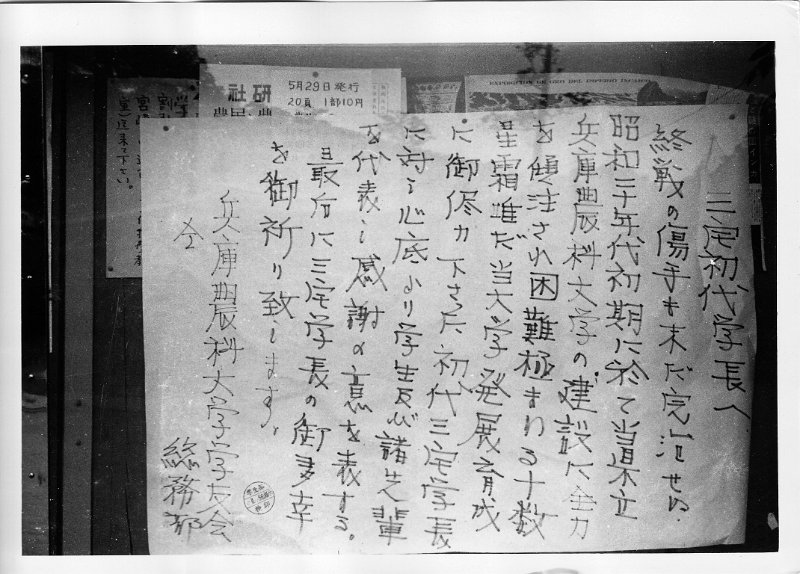 三宅初代学長へ
終戦の傷手も未だ完治せぬ
昭和三十年代初期に於て当県立
兵庫農科大学の建設に全力
を傾注され困難極まりる十数
星霜唯だ当大学発展育成
に御尽力下さった初代三宅学長
に対し心底より学生及び諸先輩
を代表し感謝の意を表する。
最后に三宅学長の御多幸
を御祈り致します。
兵庫農科大学学友会
総務部
研
社
5月29日発行
20頁 1部10円
EXPOSICION DE ORO DEL IMPERIO INCAICO